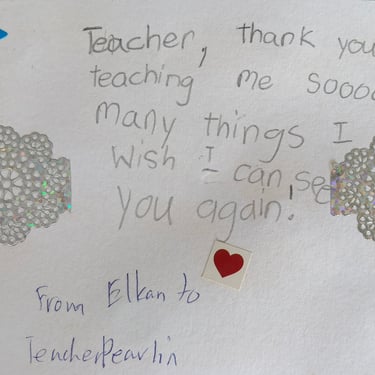 Teacher, thank you
teaching me soooo
many things I
wish I can see
you again!
From Elkan to
TeacherPearlin